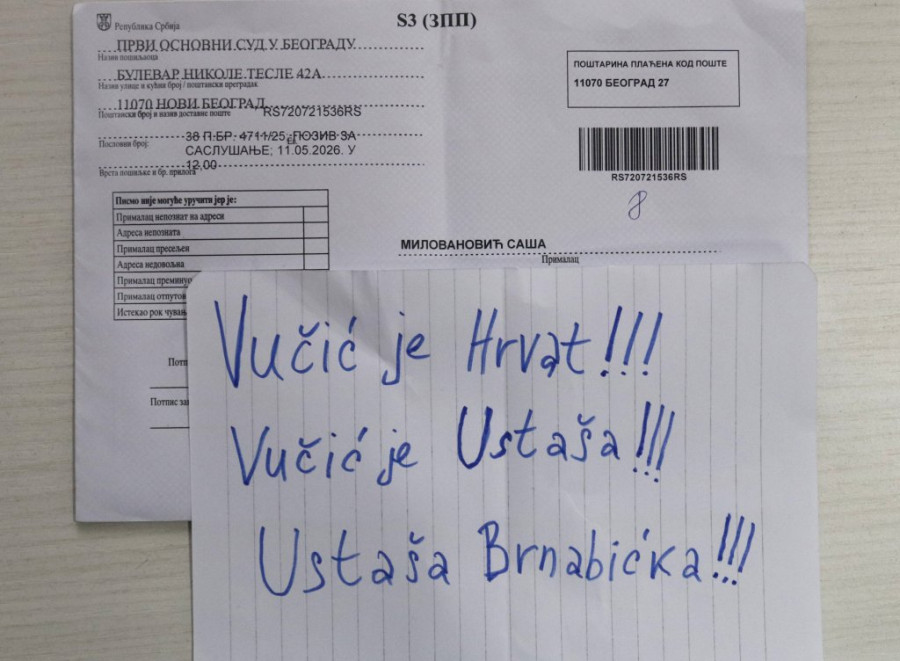 Република Србија
S3 (ЗПП)
ПРВИ ОСНОВНИ СУД У БЕОГРАДУ
Назив пошиљаоца
БУЛЕВАР НИКОЛЕ ТЕСЛЕ 42А
Назив улице и кућни број / поштански преградак
11070 НОВИ БЕОГРАД
Поштански број и назив доставне поште
RS720721536RS
Пословни број:
36 П.БР. 4711/25, ПОЗИВ ЗА
САСЛУШАЊЕ; 11.05.2026. У
12,00
Врста пошиљке и бр. прилога
ПОШТАРИНА ПЛАЋЕНА КОД ПОШТЕ
11070 БЕОГРАД 27
RS720721536RS
8
МИЛОВАНОВИЋ САША
Прималац
Писмо није могуће уручити јер је:
Прималац непознат на адреси
Адреса непозната
Прималац пресељен
Адреса недовољна
Прималац преминуо
Прималац отпутов
Истекао рок чувањ
Потп
Потпис за
Vučić je Hrvat!!!
Vučić je Ustaša!!!
Ustaša Brnabićka!!!